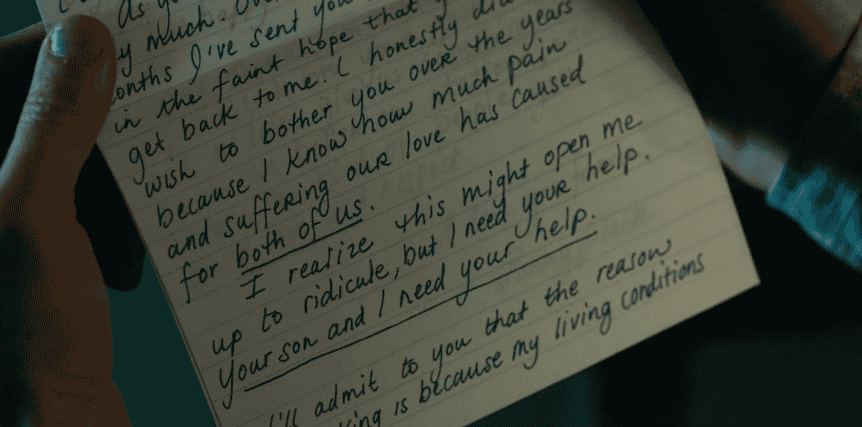 as
much.
I've sent you
in the faint hope that
get back to me. I honestly
wish to bother you over the years
because I know how much pain
and suffering our love has caused
for both of us.
I realize this might open me
up to ridicule, but I need your help.
Your son and I need your help.
I'll admit to you that the reason
is because my living conditions